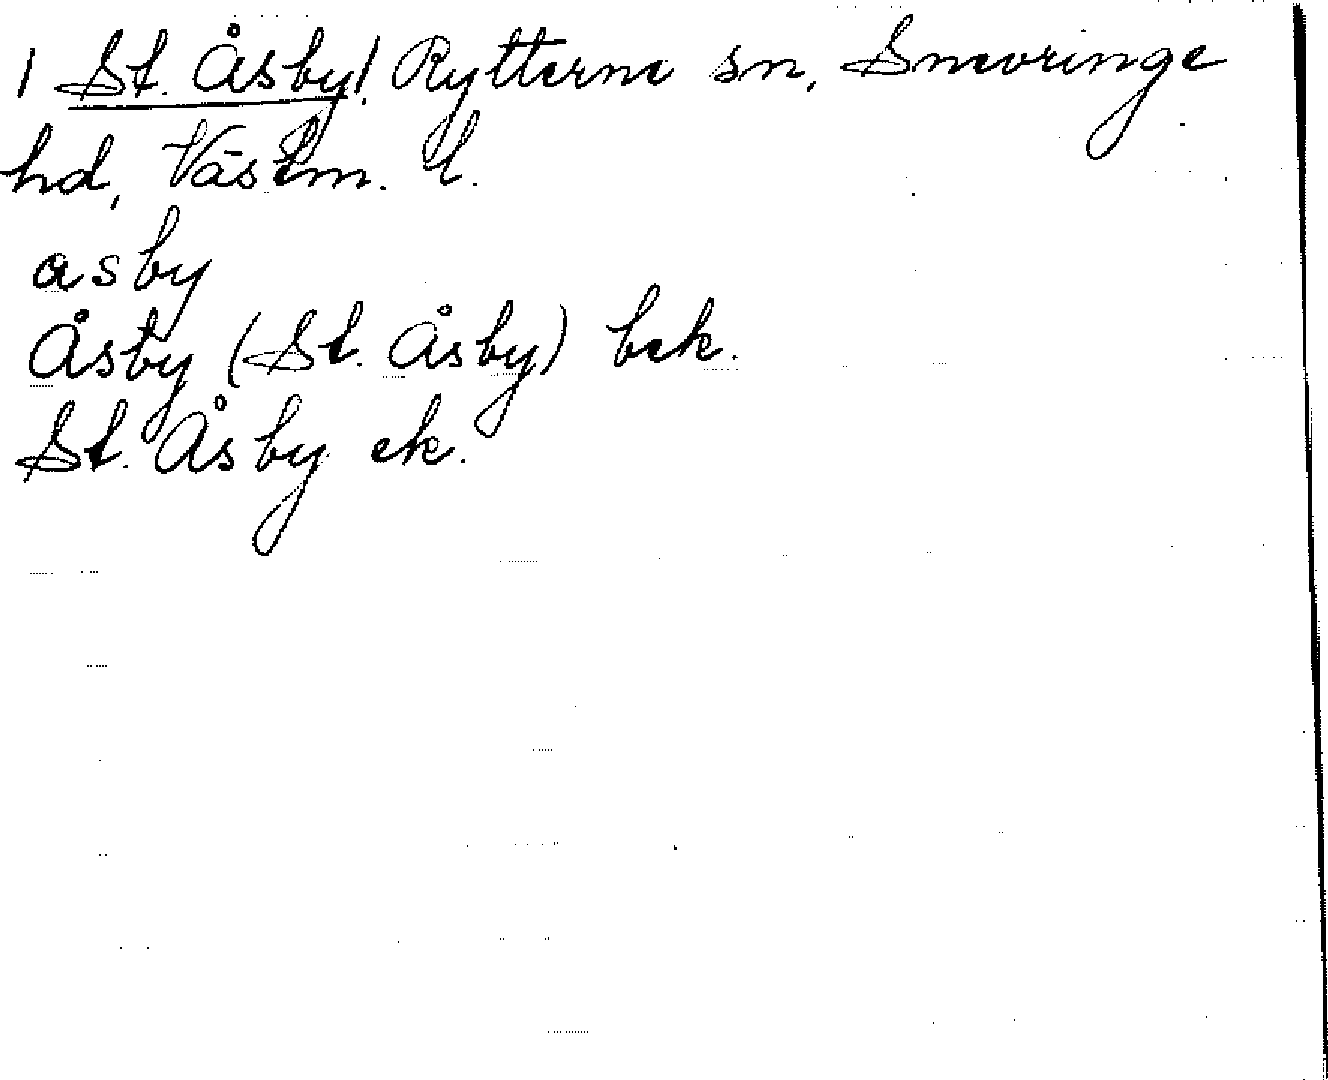 | St. Åsby |, Rytterne sn, Snevringe
hd, Västm. l.
asby
Åsby (St. Åsby) bek.
St. Åsby ek.